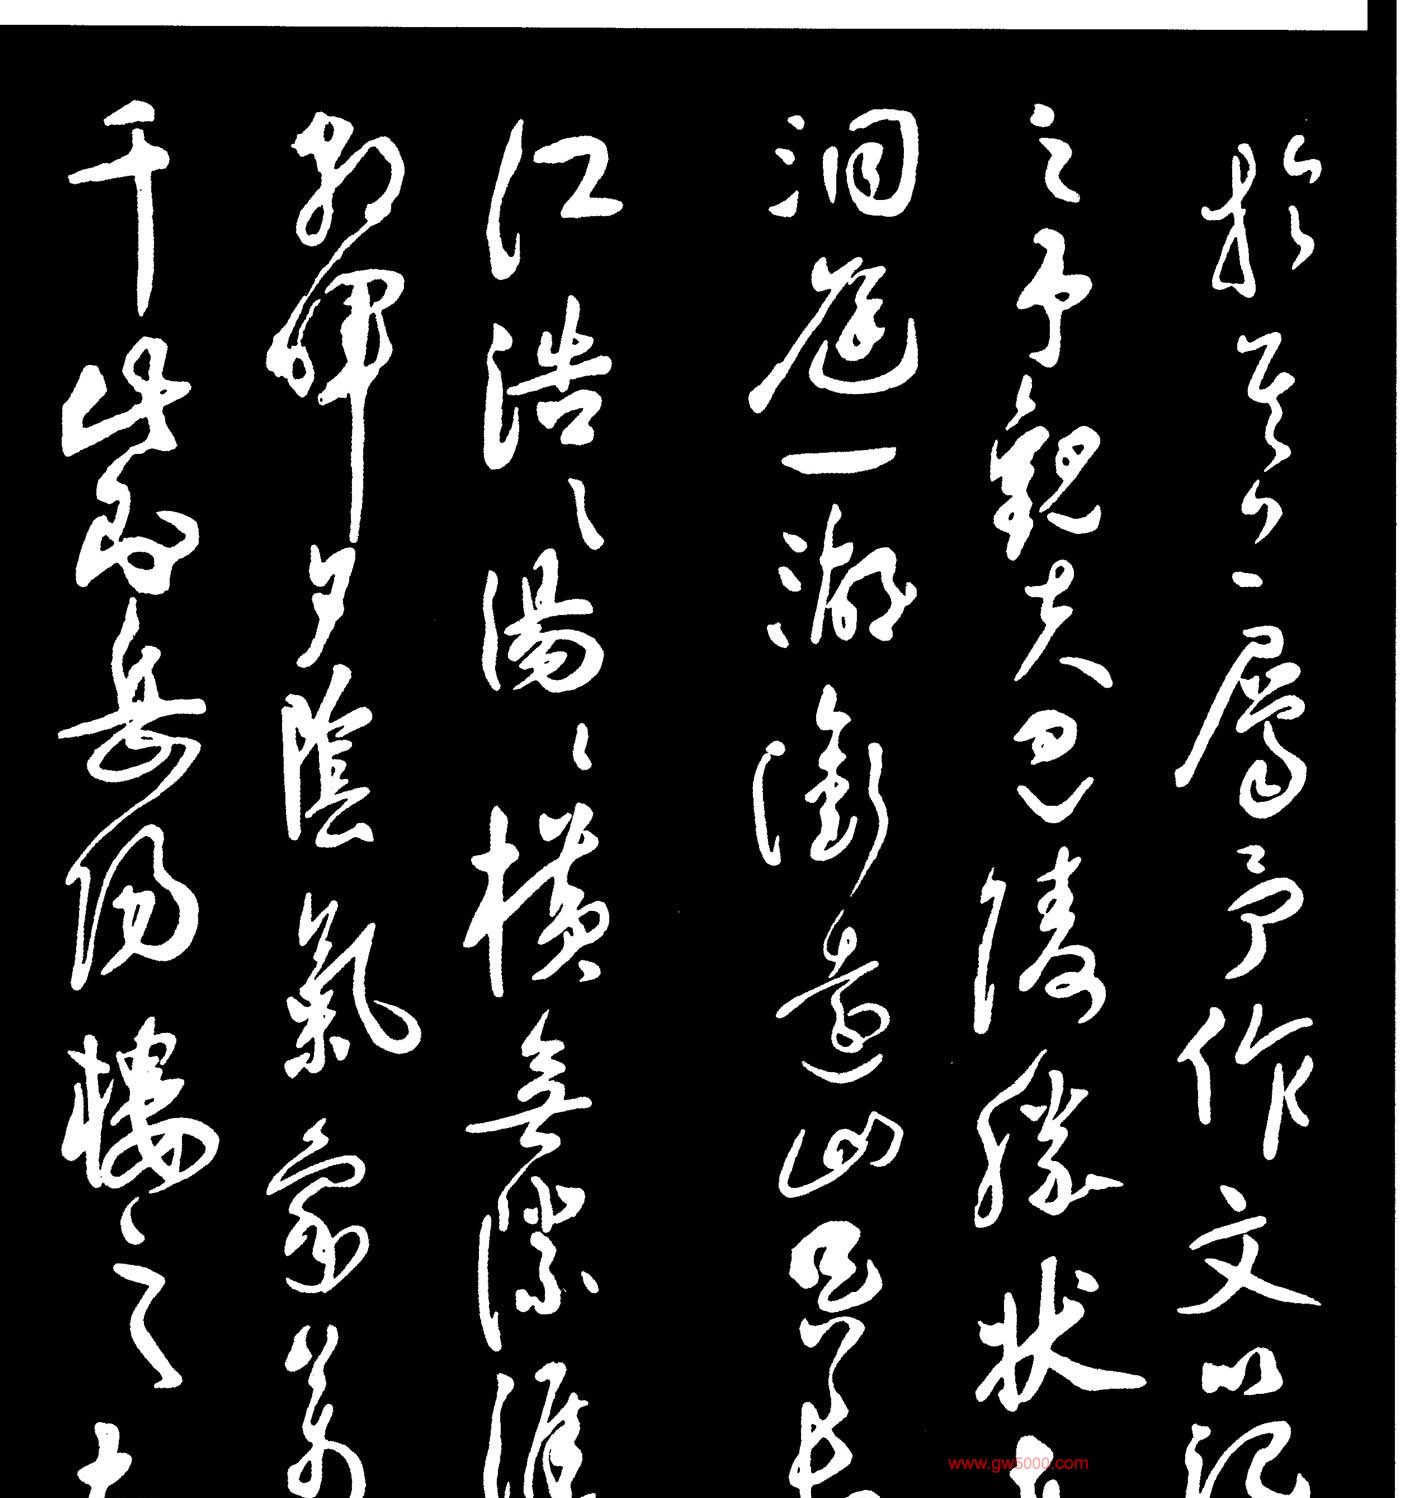 於其上屬予作文以記
之予觀夫巴陵勝狀在
洞庭一湖銜遠山吞長
江浩〻湯〻橫無際涯
朝暉夕陰氣象萬
千此則岳陽樓之大
www.gw5000.com